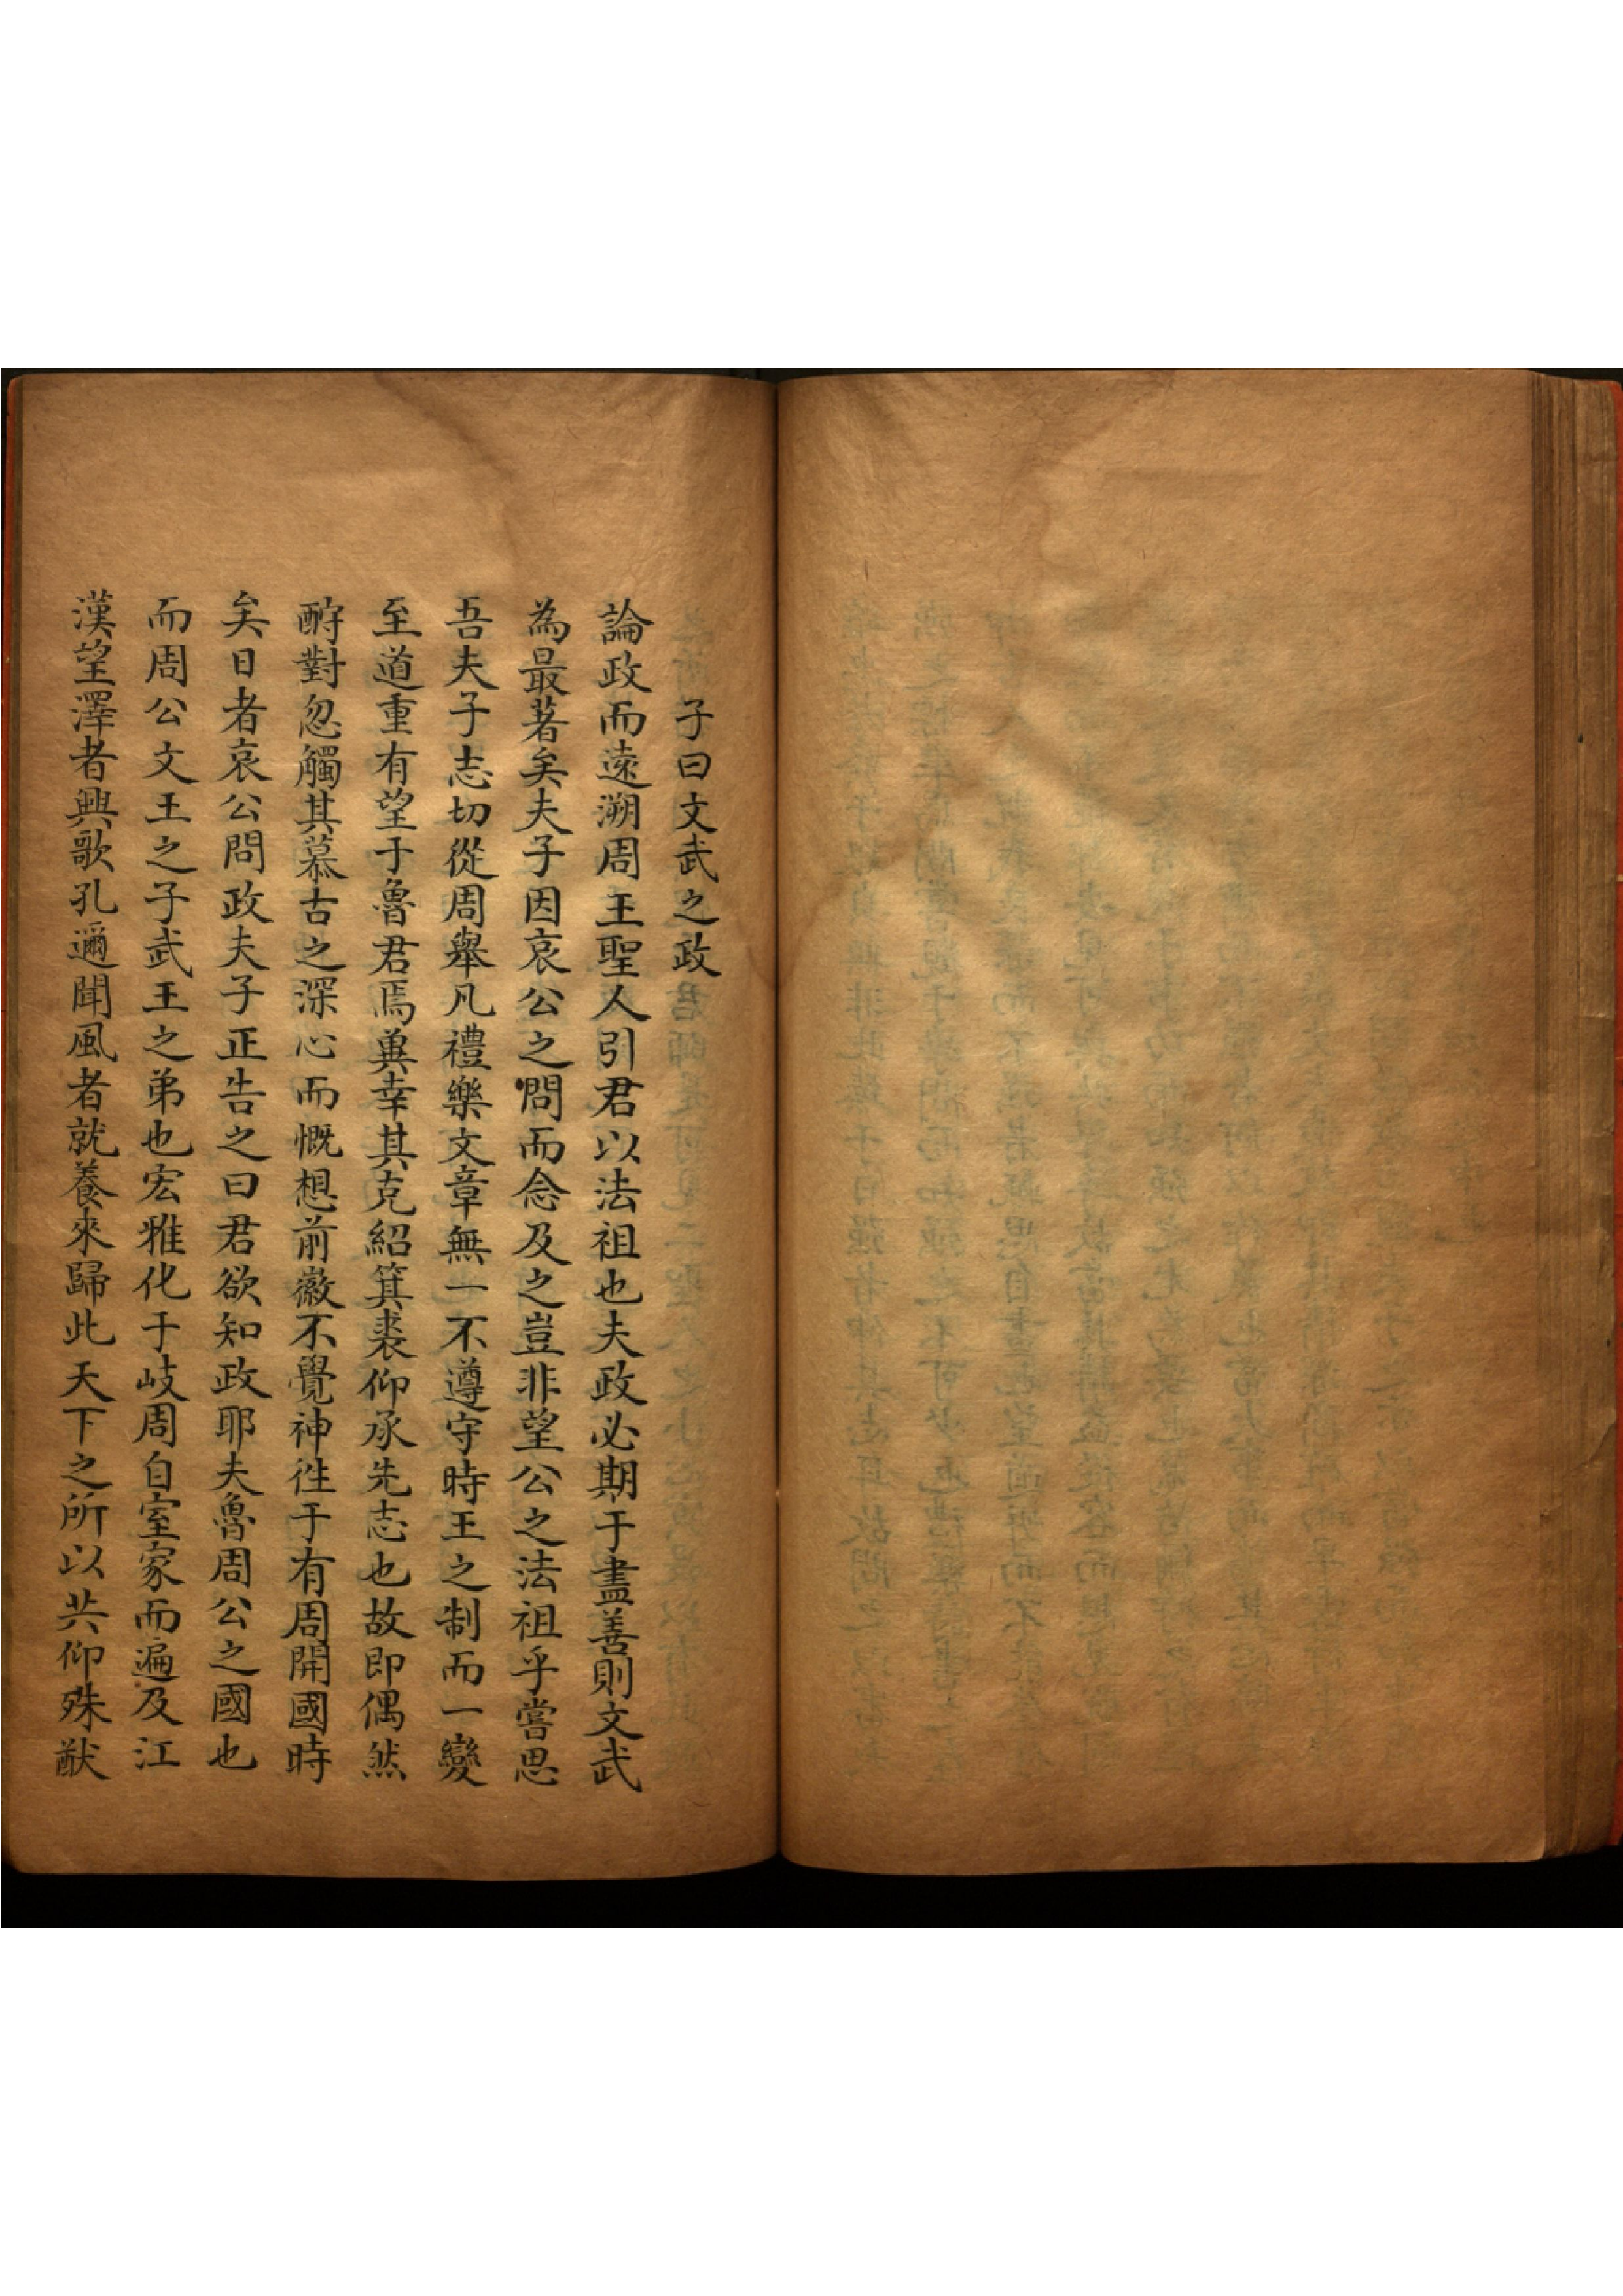 子曰文武之政
論政而遠溯周王聖人引君以法祖也夫政必期于盡善則文武
為最著矣夫子因哀公之問而念及之豈非望公之法祖乎嘗思
吾夫子志切從周舉凡禮樂文章無一不遵守時王之制而一變
至道重有望于魯君焉冀幸其克紹箕裘仰承先志也故即偶然
酧對忽觸其慕古之深心而慨想前徽不覺神徃于有周開國時
矣日者哀公問政夫子正告之曰君欲知政耶夫魯周公之國也
而周公文王之子武王之弟也宏雅化于岐周自室家而遍及江
漢望澤者興歌孔邇聞風者就養來歸此天下之所以共仰殊猷